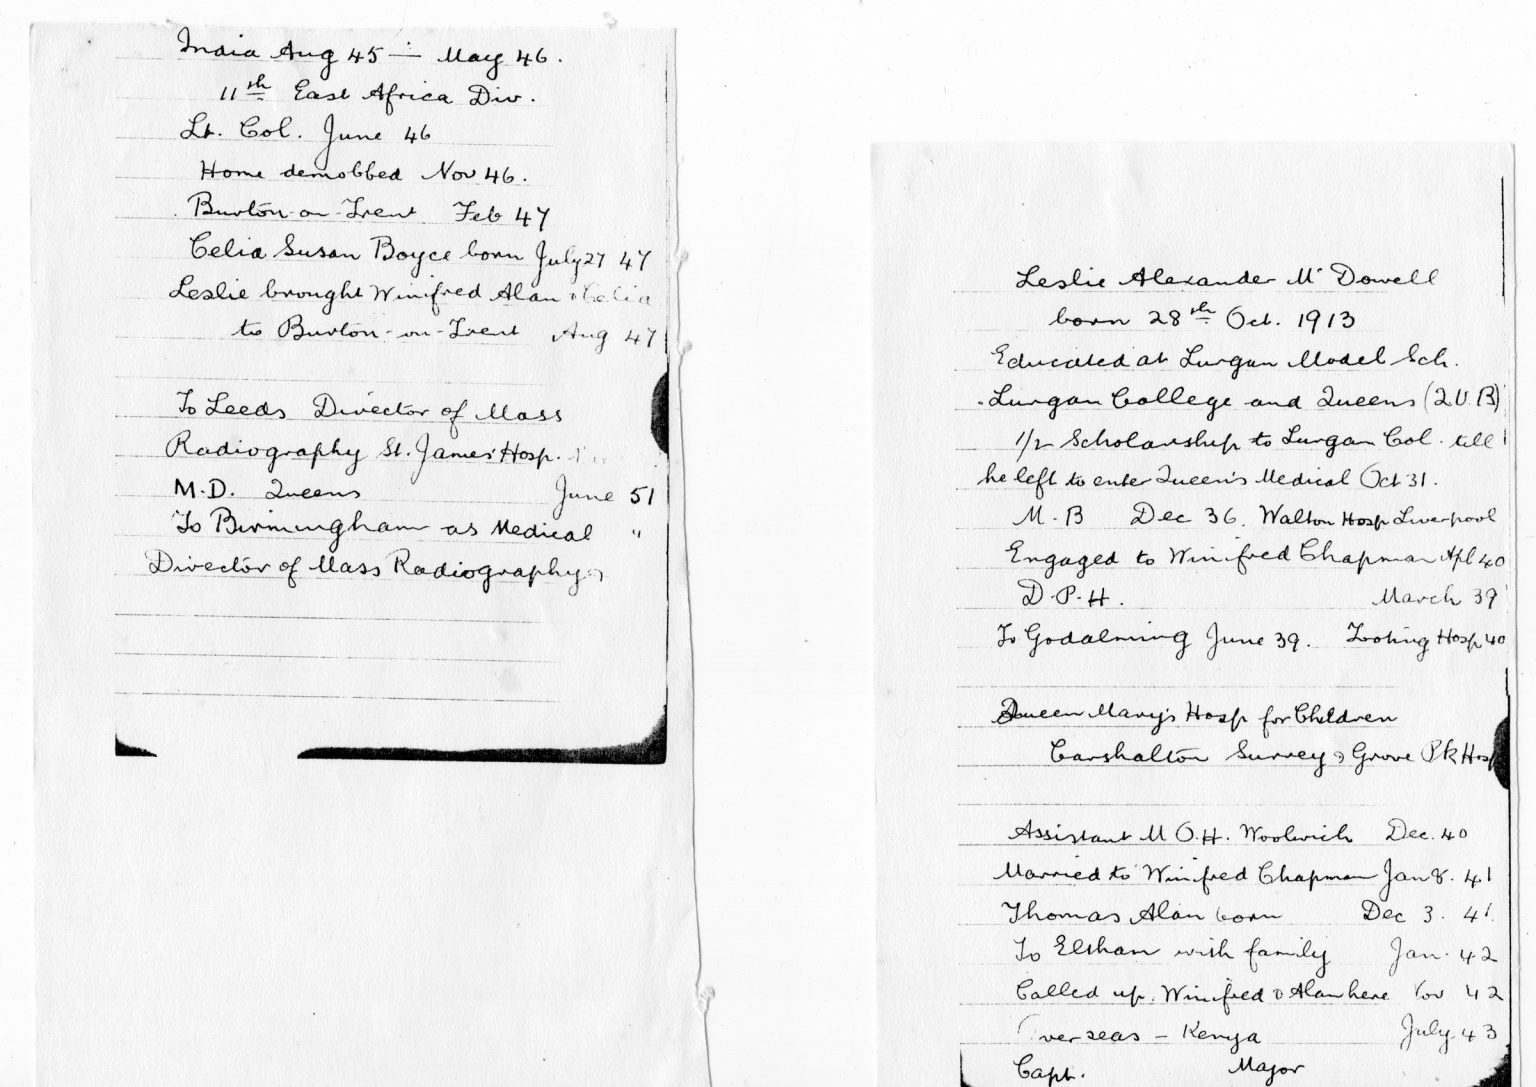 India Aug 45 — May 46.
11th East Africa Div.
Lt. Col. June 46
Home demobbed Nov 46.
Burton-on-Trent Feb 47
Celia Susan Boyce born July 27 47
Leslie brought Winifred Alan & Celia
to Burton-on-Trent Aug 47
To Leeds Director of Mass
Radiography St. James' Hosp.
M.D. Queens June 51
To Birmingham as Medical "
Director of Mass Radiography
Leslie Alexander McDowell
born 28th Oct. 1913
Educated at Lurgan Model Sch.
Lurgan College and Queens (QUB)
1/2 Scholarship to Lurgan Col. till
he left to enter Queen's Medical Oct 31.
M.B Dec 36. Walton Hosp Liverpool
Engaged to Winifred Chapman Apl 40
D.P.H. March 39
To Godalming June 39. Tooting Hosp 40
Queen Mary's Hosp for Children
Carshalton Surrey & Grove Pk Hosp
Assistant M.O.H. Woolwich Dec. 40
Married to Winifred Chapman Jan 8. 41
Thomas Alan born Dec 3. 41.
To Eltham with family Jan. 42
Called up. Winifred & Alan here Nov 42
Overseas – Kenya July 43
Capt. Major